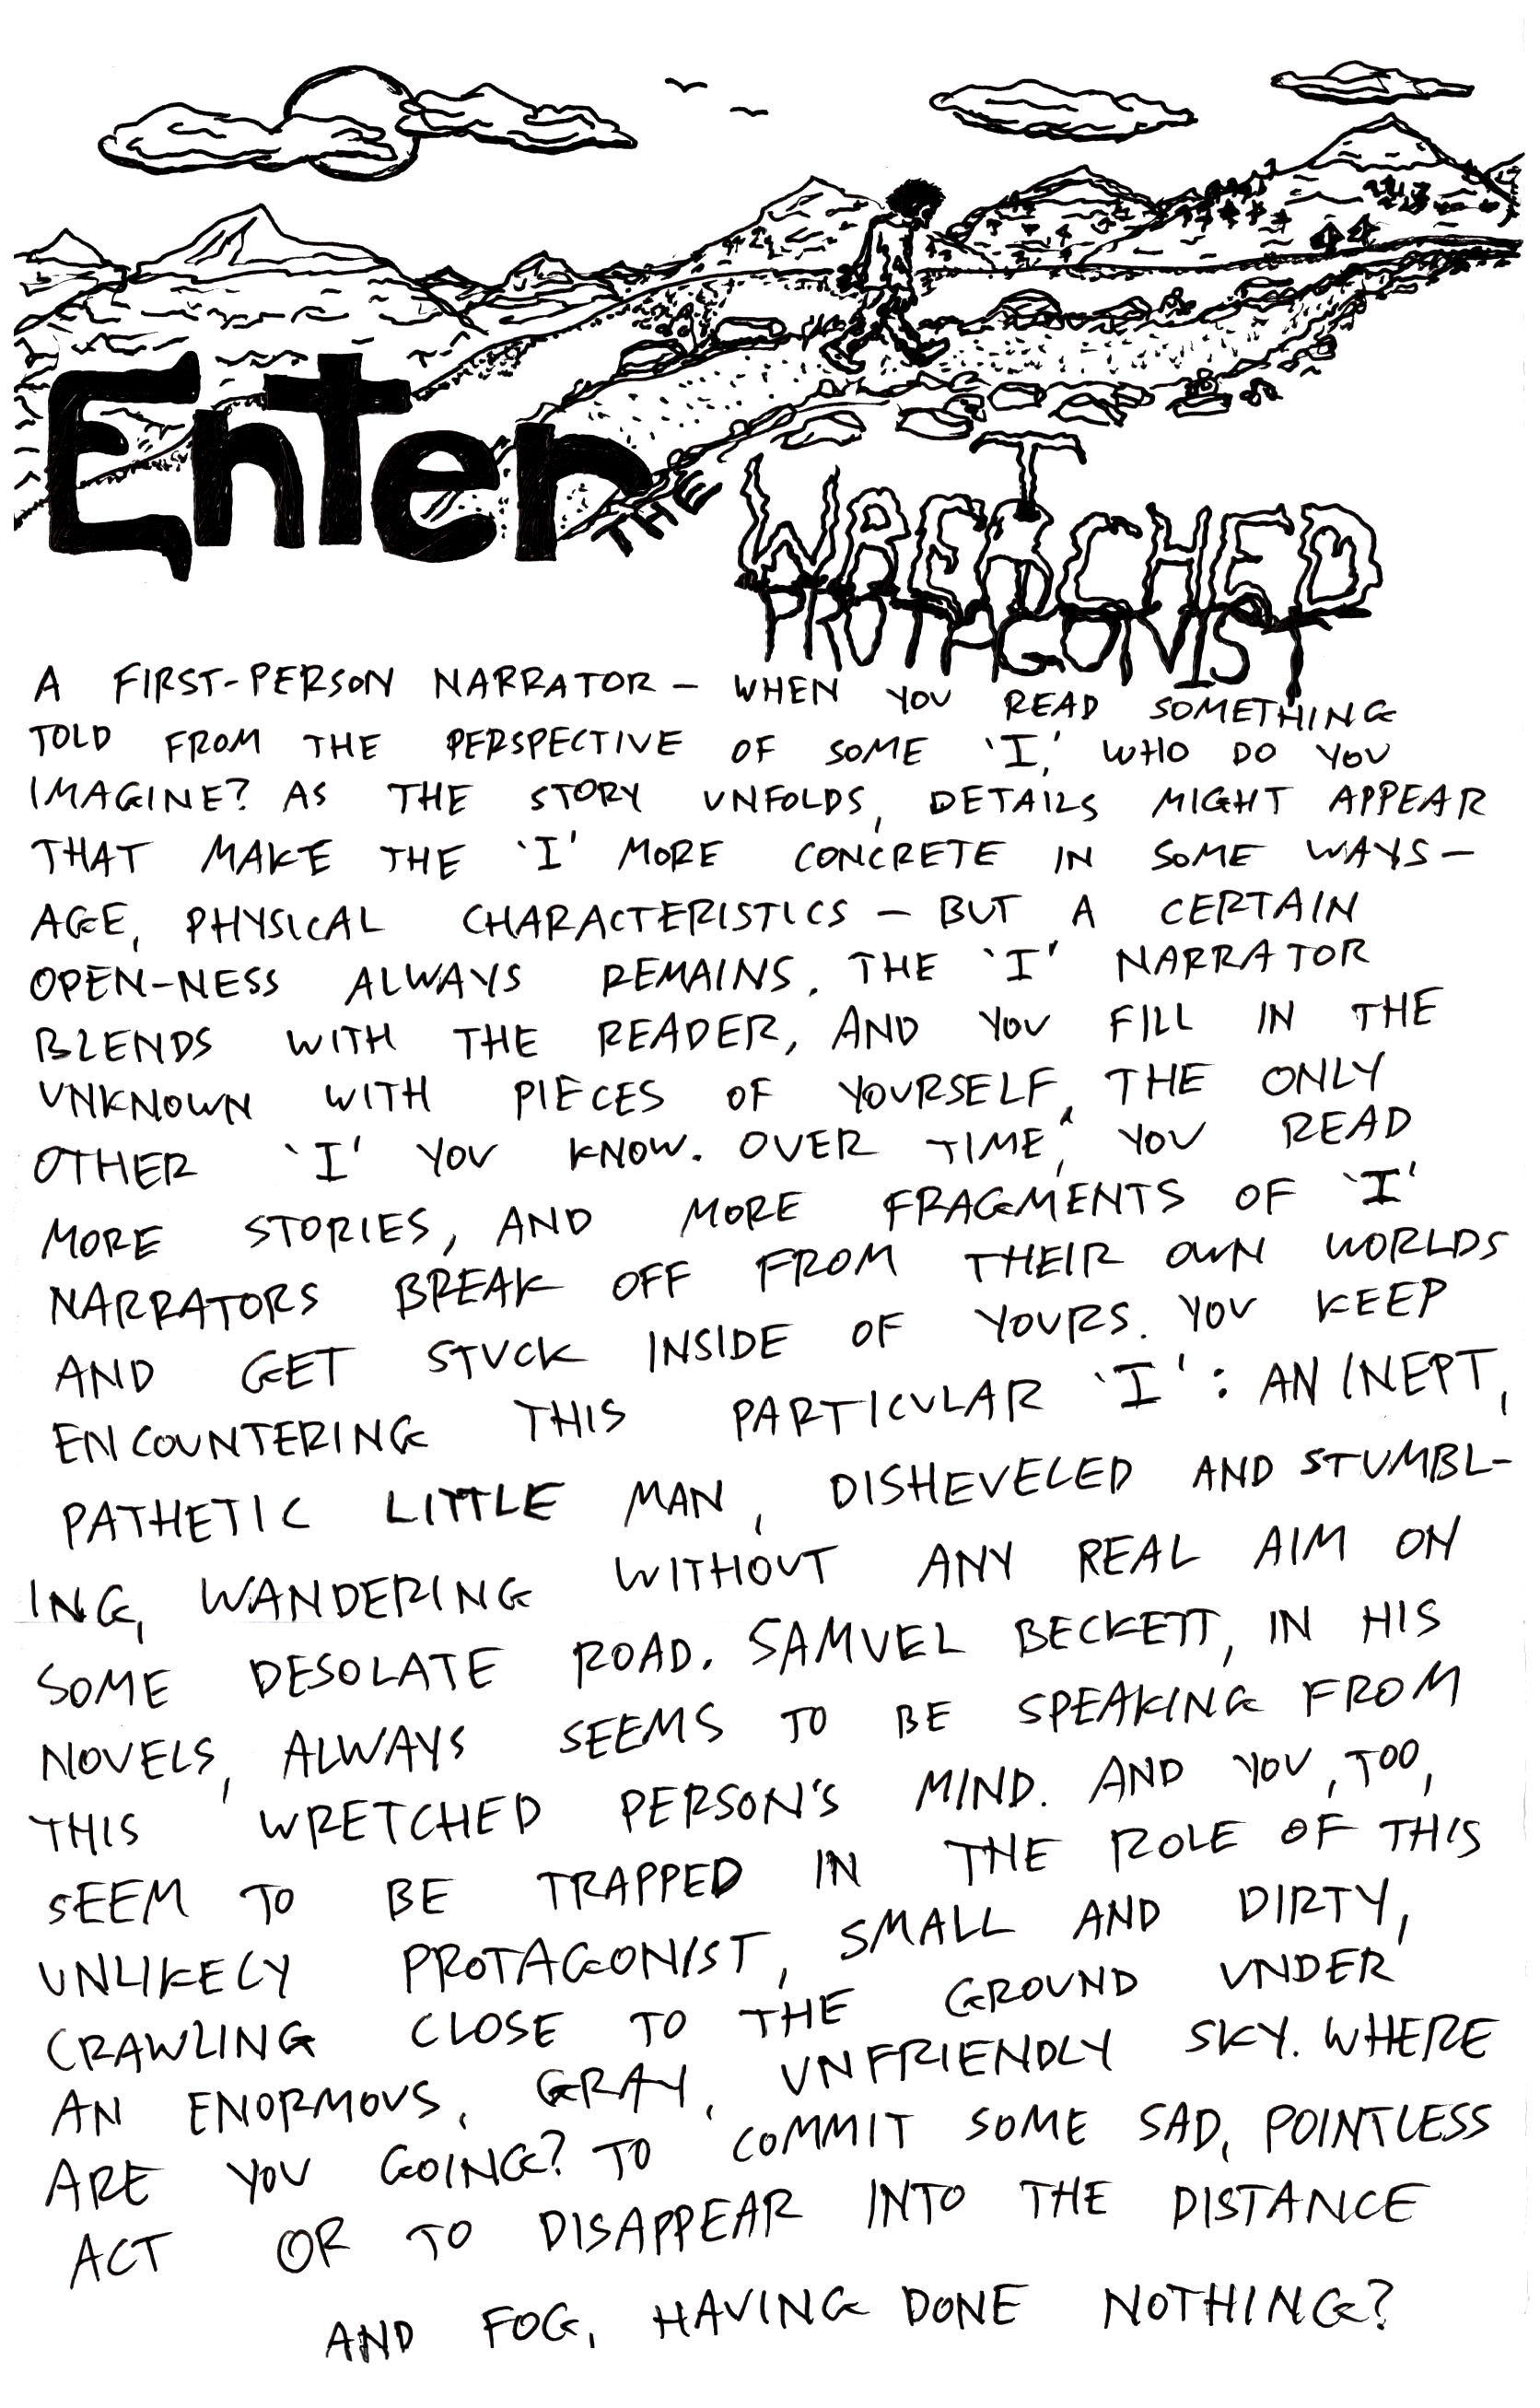 Enter THE WRETCHED
PROTAGONIST
A FIRST-PERSON NARRATOR — WHEN YOU READ SOMETHING
TOLD FROM THE PERSPECTIVE OF SOME 'I,' WHO DO YOU
IMAGINE? AS THE STORY UNFOLDS, DETAILS MIGHT APPEAR
THAT MAKE THE 'I' MORE CONCRETE IN SOME WAYS —
AGE, PHYSICAL CHARACTERISTICS — BUT A CERTAIN
OPEN-NESS ALWAYS REMAINS. THE 'I' NARRATOR
BLENDS WITH THE READER, AND YOU FILL IN THE
UNKNOWN WITH PIECES OF YOURSELF, THE ONLY
OTHER 'I' YOU KNOW. OVER TIME, YOU READ
MORE STORIES, AND MORE FRAGMENTS OF 'I'
NARRATORS BREAK OFF FROM THEIR OWN WORLDS
AND GET STUCK INSIDE OF YOURS. YOU KEEP
ENCOUNTERING THIS PARTICULAR 'I': AN INEPT,
PATHETIC LITTLE MAN, DISHEVELED AND STUMBL-
ING, WANDERING WITHOUT ANY REAL AIM ON
SOME DESOLATE ROAD. SAMUEL BECKETT, IN HIS
NOVELS, ALWAYS SEEMS TO BE SPEAKING FROM
THIS WRETCHED PERSON'S MIND. AND YOU, TOO,
SEEM TO BE TRAPPED IN THE ROLE OF THIS
UNLIKELY PROTAGONIST, SMALL AND DIRTY,
CRAWLING CLOSE TO THE GROUND UNDER
AN ENORMOUS, GRAY, UNFRIENDLY SKY. WHERE
ARE YOU GOING? TO COMMIT SOME SAD, POINTLESS
ACT OR TO DISAPPEAR INTO THE DISTANCE
AND FOG, HAVING DONE NOTHING?